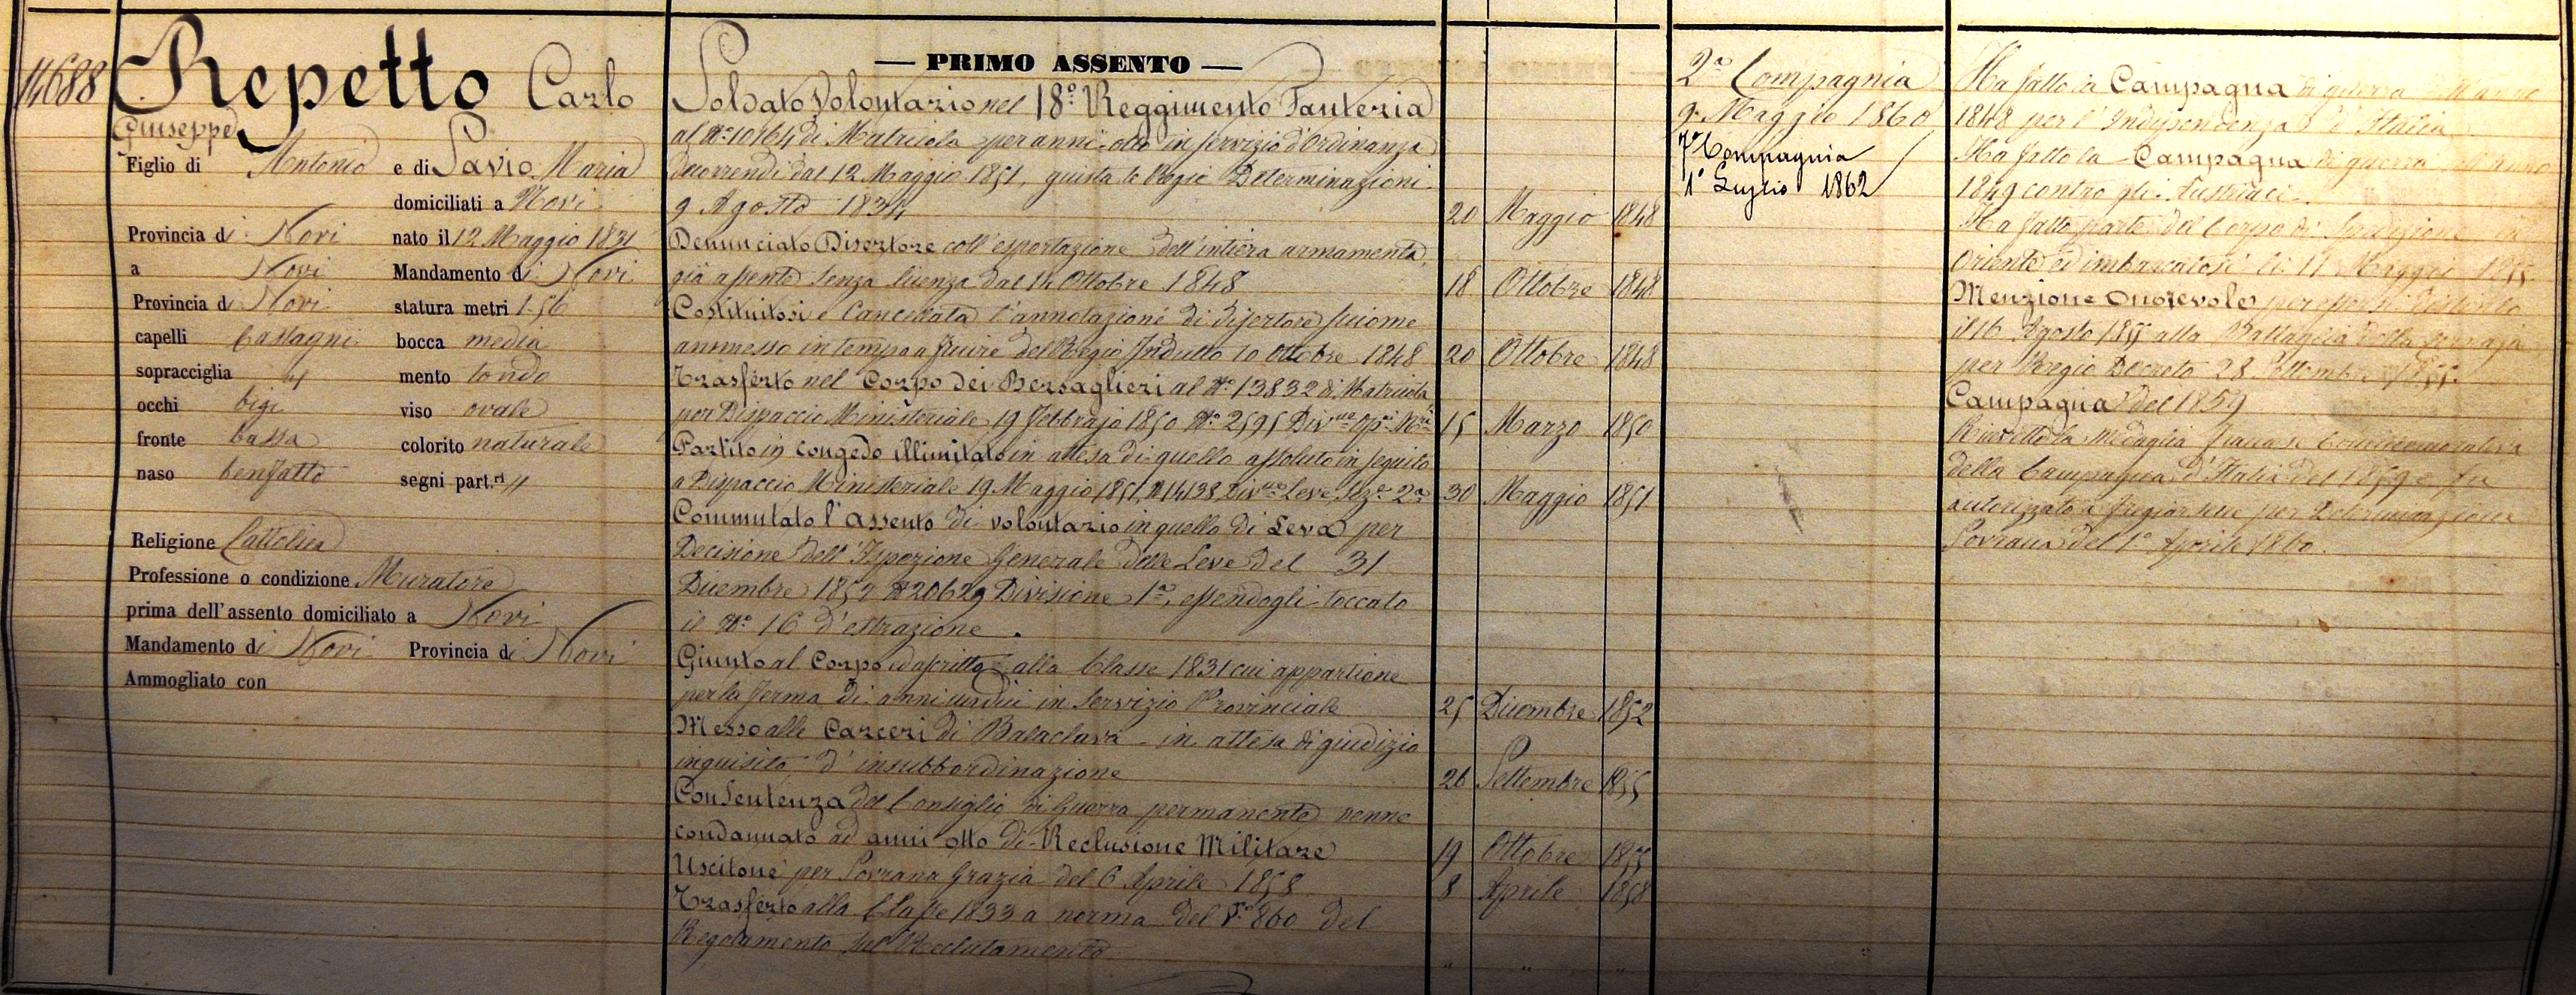 14688
Repetto Carlo
Giuseppe
Figlio di Antonio e di Savio Maria
domiciliati a Novi
Provincia di Novi nato il 12 Maggio 1831
a Novi Mandamento di Novi
Provincia di Novi statura metri 1.56
capelli Castagni bocca media
sopracciglia id mento tondo
occhi bigi viso ovale
fronte bassa colorito naturale
naso benfatto segni part.ri "
Religione Cattolica
Professione o condizione Muratore
prima dell'assento domiciliato a Novi
Mandamento di Novi Provincia di Novi
Ammogliato con
— PRIMO ASSENTO —
Soldato Volontario nel 18° Reggimento Fanteria
al N° 10164 di Matricola per anni otto in servizio d'Ordinanza
decorrendi dal 12 Maggio 1851, giusta le Regie Determinazioni
9 Agosto 1834 20 Maggio 1848
Denunciato Disertore coll'esportazione dell'intiera armamenta
già assente senza licenza dal 14 Ottobre 1848 18 Ottobre 1848
Costituitosi e Cancellata l'annotazione di disertore siccome
ammesso in tempo a fruire del Regio Indulto 10 Ottobre 1848 20 Ottobre 1848
Trasferto nel Corpo dei Bersaglieri al N° 13832 di Matricola
per Dispaccio Ministeriale 19 Febbrajo 1850 N° 2595 15 Marzo 1850
Partito in congedo illimitato in attesa di quello assoluto in seguito
a Dispaccio Ministeriale 19 Maggio 1851 N 14138 Div.ne Leve Sez.e 2a 30 Maggio 1851
Commutato l'assento di volontario in quello di Leva per
Decisione dell'Ispezione Generale delle Leve del 31
Dicembre 1852 N 20629 Divisione 1a, essendogli toccato
il N° 16 d'estrazione.
Giunto al Corpo ed ascritto alla Classe 1831 cui appartiene
per la ferma di anni undici in Servizio Provinciale 25 Dicembre 1852
Messo alle Carceri di Balaclava in attesa di giudizio
inquisito d'insubbordinazione 26 Settembre 1855
Con Sentenza del Consiglio di Guerra permanente venne
condannato ad anni otto di Reclusione Militare 19 Ottobre 1855
Uscitone per Sovrana Grazia del 6 Aprile 1858 8 Aprile 1858
Trasferto alla Classe 1833 a norma del § 860 del
Regolamento sul Reclutamento " " "
2a Compagnia
9 Maggio 1860
7a Compagnia
1° Luglio 1862
Ha fatto la Campagna di guerra dell'anno
1848 per l'Indipendenza d'Italia
Ha fatto la Campagna di guerra dell'anno
1849 contro gli Austriaci.
Ha fatto parte del Corpo di Spedizione in
Oriente ed imbarcatosi li 11 Maggio 1855
Menzione Onorevole per essersi distinto
il 16 Agosto 1855 alla Battaglia della Cernaja
per Regio Decreto 28 Settembre 1855
Campagna del 1859
Ricevette la Medaglia francese Commemorativa
della Campagna d'Italia del 1859 e fu
autorizzato a fregiarsene per Determinazione
Sovrana del 1° Aprile 1860.